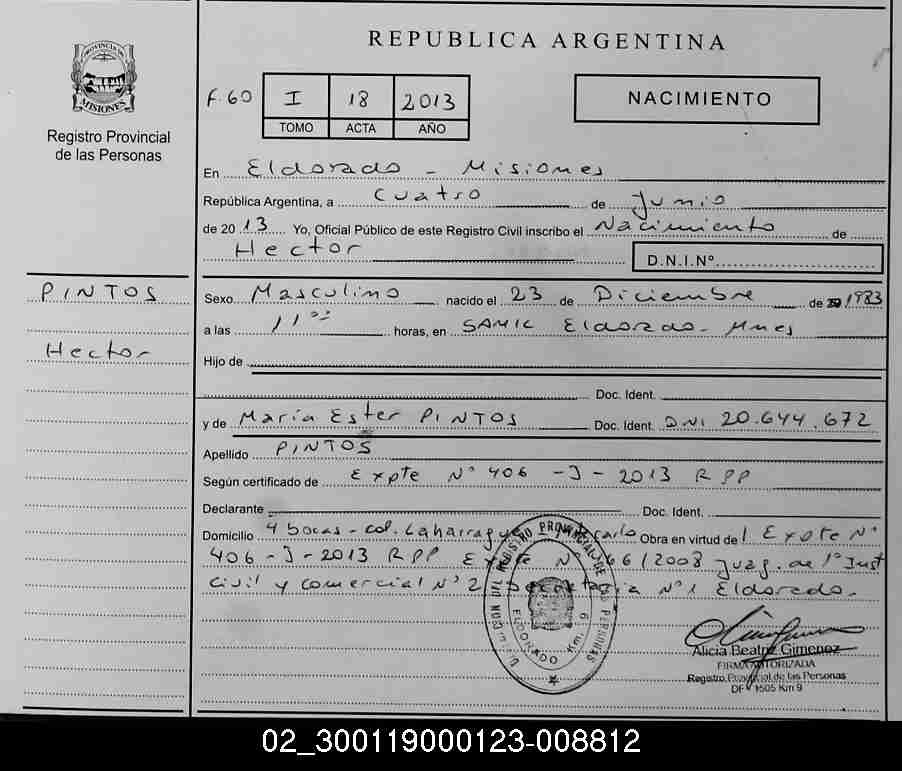 REPUBLICA ARGENTINA
PROVINCIA DE
MISIONES
Registro Provincial
de las Personas
F. 60 I 18 2013
TOMO ACTA AÑO
NACIMIENTO
En Eldorado - Misiones
República Argentina, a Cuatro de Junio
de 2013 Yo, Oficial Público de este Registro Civil inscribo el Nacimiento de
Hector D.N.I.Nº
PINTOS
Hector
Sexo Masculino nacido el 23 de Diciembre de 1983
a las 11 00 horas, en SAMIC Eldorado - Mnes
Hijo de
Doc. Ident.
y de María Ester PINTOS Doc. Ident. DNI 20.644.672
Apellido PINTOS
Según certificado de Expte Nº 406 - J - 2013 RPP
Declarante Doc. Ident.
Domicilio 4 bocas - col. Laharrague Obra en virtud de Expte Nº
406 - J - 2013 RPP /2008 Juzg. de 1º Inst
Civil y comercial Nº 2 Nº 1 Eldorado.
REGISTRO PROVINCIAL DE LAS PERSONAS
ELDORADO Km. 9
Alicia Beatriz Gimenez
FIRMA AUTORIZADA
Registro Provincial de las Personas
DF 1505 Km 9
02_300119000123-008812